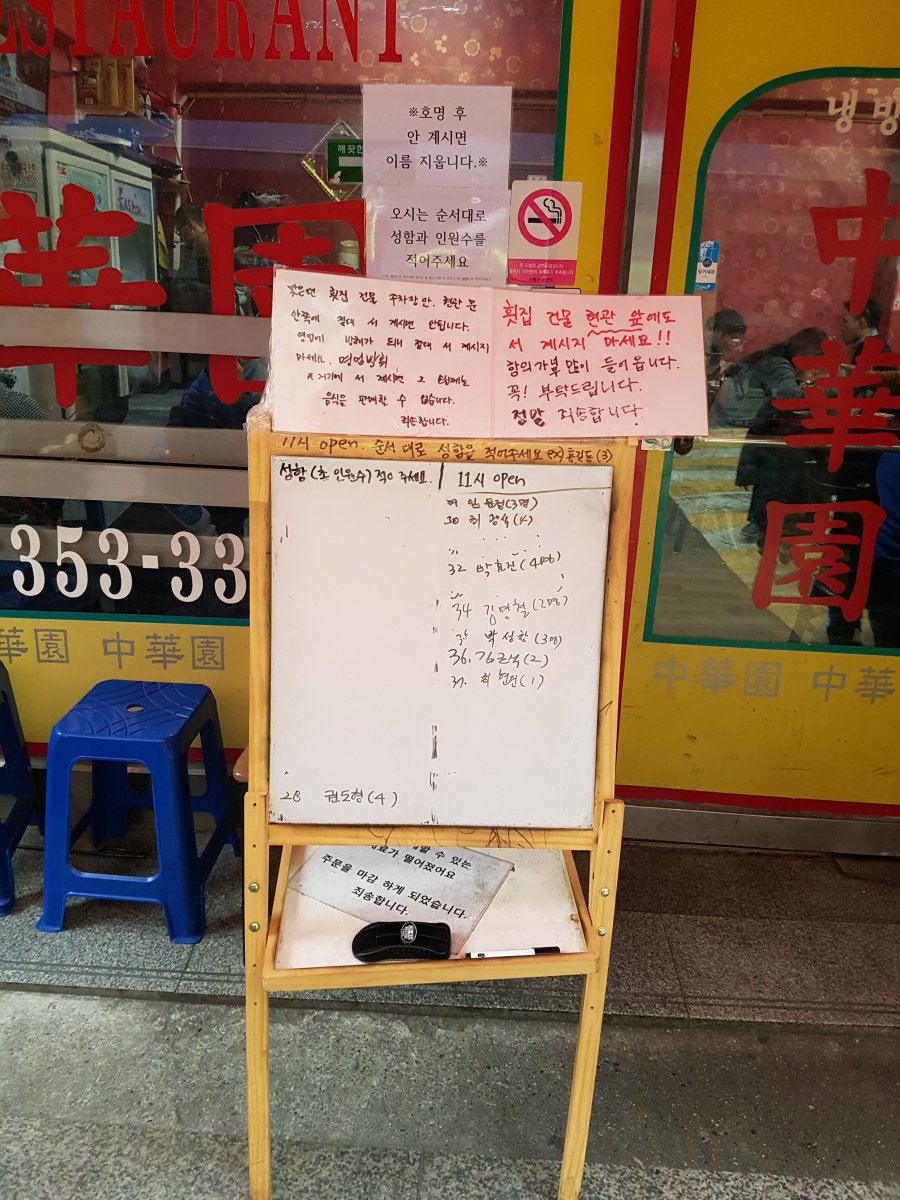 RESTAURANT
※호명 후
안 계시면
이름 지웁니다.※
깨끗한
오시는 순서대로
성함과 인원수를
적어주세요
냉방
華園
中華園
횟집 건물 주차장 안. 현관 문
안쪽에 절대 서 계시면 안됩니다.
영업에 방해가 되니 절대 서 계시지
마세요. 영업방해
※거기에 서 계시면 그 팀께는
음식을 판매할 수 없습니다.
죄송합니다.
횟집 건물 현관 앞에도
서 계시지 마세요!!
항의가 많이 들어옵니다.
꼭! 부탁드립니다.
정말 죄송합니다.
당기세요
11시 open. 순서대로 성함을 적어주세요 ex) 홍길동(3)
성함(총 인원수) 적어 주세요. / 11시 open
30 최광숙(4)
32 박효진(4명)
34 김명철(2명)
35 박성찬(3명)
36. 김근숙(2)
37. 최현진(1)
28 권도형(4)
353-33
華園 中華園
中華園 中華
할 수 있는
재료가 떨어졌어요
주문을 마감 하게 되었습니다.
죄송합니다.